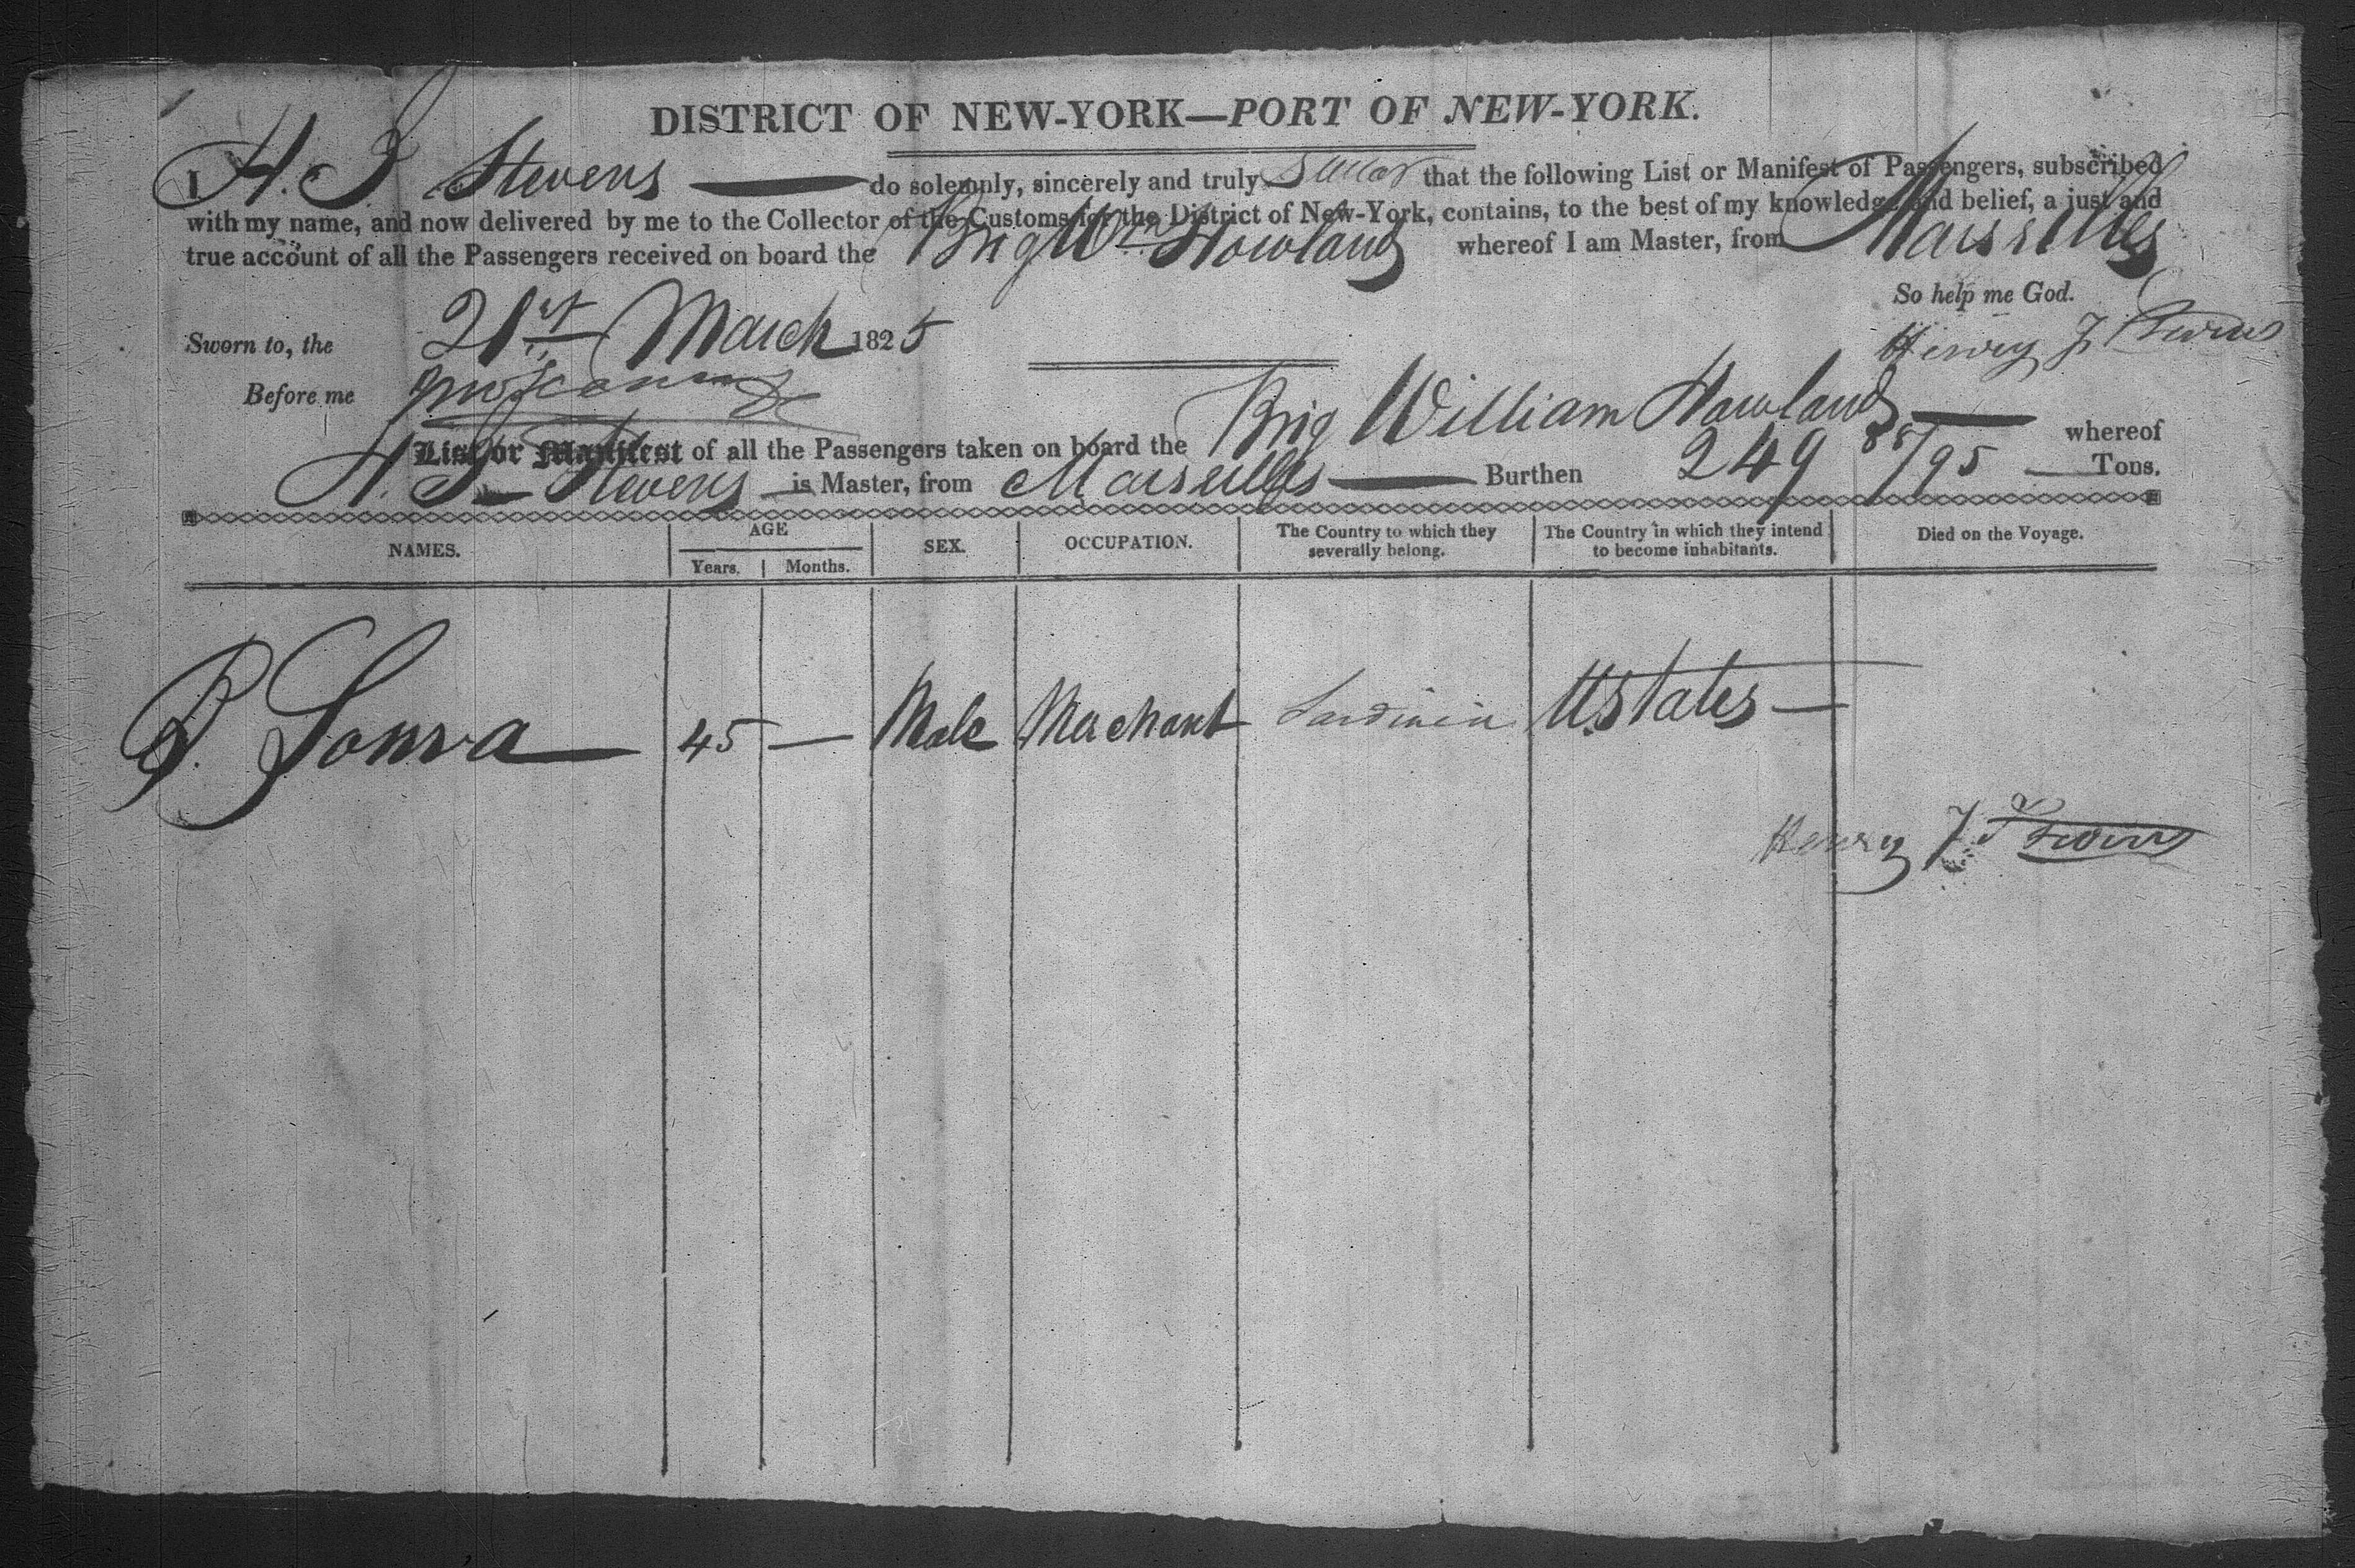 DISTRICT OF NEW-YORK—PORT OF NEW-YORK.
I H. J Stevens do solemnly, sincerely and truly swear that the following List or Manifest of Passengers, subscribed
with my name, and now delivered by me to the Collector of the Customs for the District of New-York, contains, to the best of my knowledge and belief, a just and
true account of all the Passengers received on board the Brig Wm Howland whereof I am Master, from Marseilles
So help me God.
Sworn to, the 21st March 1825
Henry J Stevens
Before me
List or Manifest of all the Passengers taken on board the Brig William Howland whereof
H. J Stevens is Master, from Marseilles Burthen 249 88/95 Tons.
NAMES. AGE Years. Months. SEX. OCCUPATION. The Country to which they severally belong. The Country in which they intend to become inhabitants. Died on the Voyage.
P. 45 — Male Merchant Sardinia UStates —
Henry J Stevens